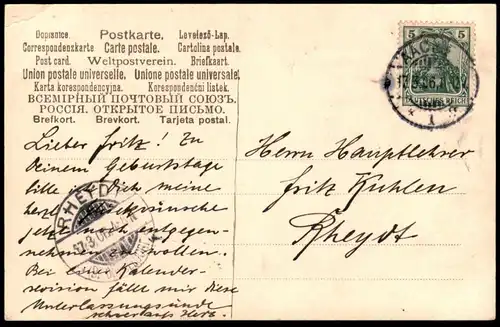 Dopisnice. Postkarte. Levelező-Lap.
Correspondenzkarte Carte postale. Cartolina postale.
Post card. Weltpostverein. Briefkaart.
Union postale universelle. Unione postale universale.
Karta korespondencyjna. Korespondenční listek.
ВСЕМІРНЫЙ ПОЧТОВЫЙ СОЮЗЪ.
РОССІЯ. ОТКРЫТОЕ ПИСЬМО.
Brefkort. Brevkort. Tarjeta postal.
5 5
DEUTSCHES REICH
Lieber Fritz! Zu
Deinem Geburtstage
bitte ich Dich meine
herzl. Glückwünsche
jetzt noch entgegen-
nehmen zu wollen.
Bei einer Kalender-
revision fällt mir diese
Unterlassungssünde
schwer aufs Herz.
RHEYDT
Herrn Hauptlehrer
Fritz Kuhlen
Rheydt